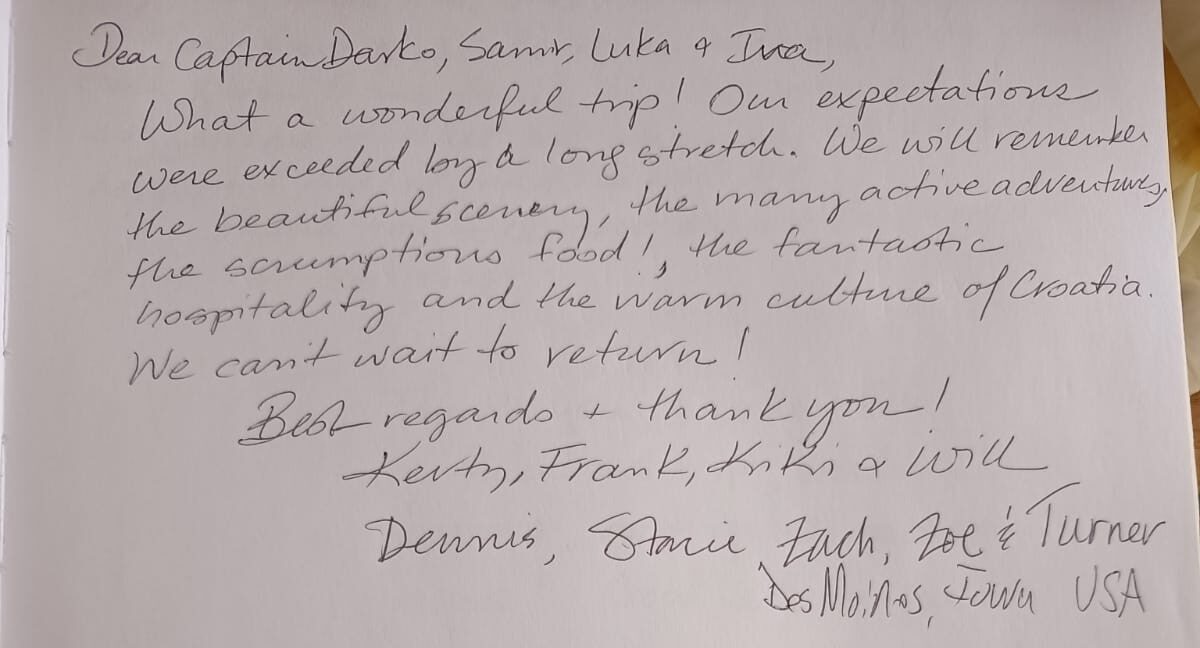 Dear Captain Darko, Samir, Luka & Iva,
What a wonderful trip! Our expectations
were exceeded by a long stretch. We will remember
the beautiful scenery, the many active adventures,
the scrumptious food!, the fantastic
hospitality and the warm culture of Croatia.
We can't wait to return!
Best regards + thank you!
Frank, Kiki & Will
Dennis, Stacie, Zach, Zoe & Turner
Des Moines, Iowa USA